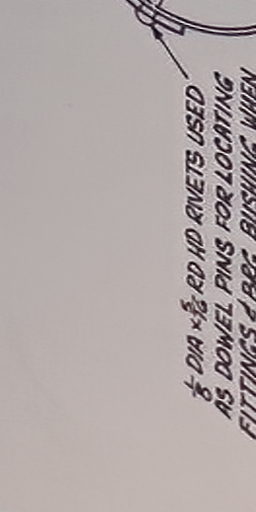 1/8 DIA x 5/16 RD HD RIVETS USED
AS DOWEL PINS FOR LOCATING
FITTINGS & BRG BUSHING WHEN